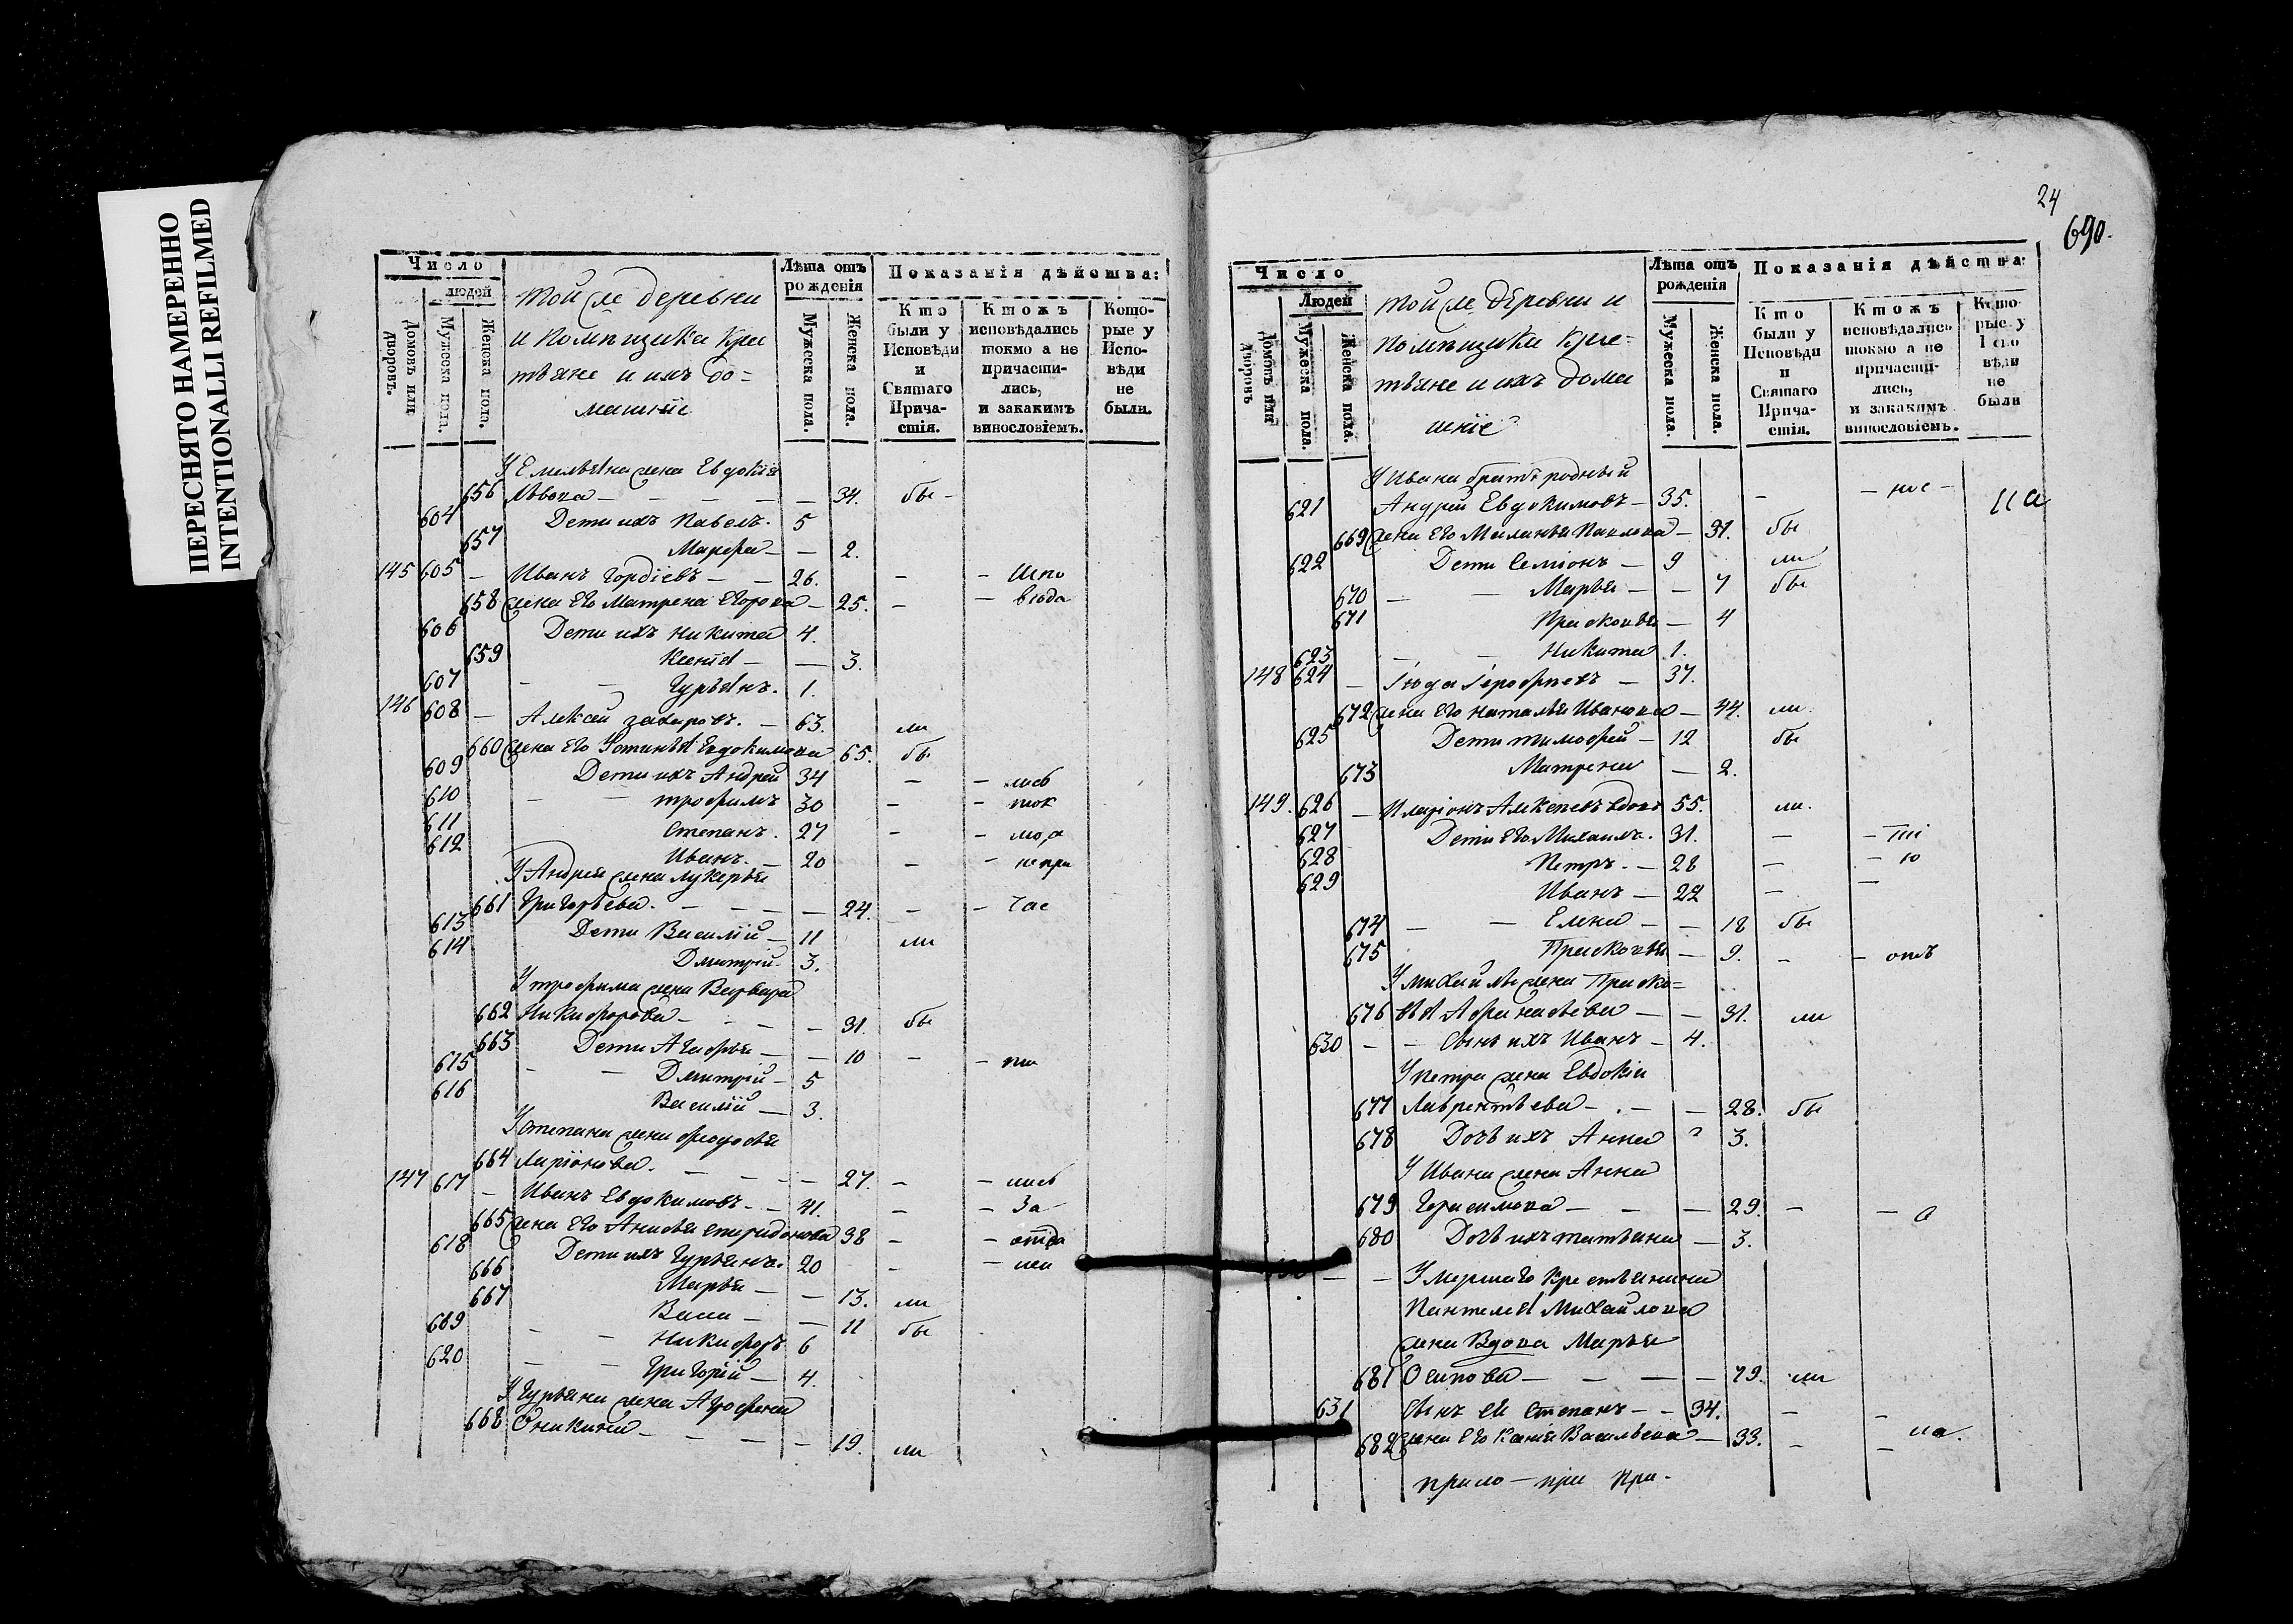 ПЕРЕСНЯТО НАМЕРЕННО
INTENTIONALLI REFILMED
Число
людей
Домовъ или дворовъ.
Мужеска пола.
Женска пола.
той же деревни
и помѣщика кре
тьяне и ихъ до=
машніе
Лѣта отъ рожденія
Мужеска пола.
Женска пола.
Показанія дѣйства:
Кто были у Исповѣди и Святаго Причастія.
Ктожъ исповѣдались токмо а не причастились, и закакимъ винословіемъ.
Которые у Исповѣди не были.
У Емельяна жена Евдокия
656 Львова — — — — — 34. бы —
604 Дети ихъ Павелъ. 5
657 Марфа — — 2.
145 605 — Иванъ Гордіевъ — — 26. — —
658 жена Его Матрена Егорова — 25. — —
606 Дети ихъ Никита 4.
659 Ксенія — — 3.
607 — — Гурьянъ. 1.
146 608 — Алексей Захаровъ. — 63. ли
660 жена Его Устинья Евдокимова 65. бы
609 Дети ихъ Андрей 34 — — лись
610 — — трофимъ 30 — — ток
611 Степанъ. 27 — — мо, а
612 Иванъ. — 20 — — непри
У Андрея жена лукерья
661 Григорьева. — — — — 24. — — час
613 Дети Василій — 11 ли
614 Дмитрій — 3.
У трофима жена Варвара
662 Никифорова — — — — 31. бы
663 Дети Агафья — — 10 — — ти
615 — — Дмитрій — 5
616 Василій — 3.
У степана жена федосья
664 Ларіонова. — — — — 27. — — лись
147 617 — Иванъ Евдокимовъ — — 41. — — За
665 жена Его Анисья спиридонова 38 — —
618 Дети ихъ Гурьянъ. 20 — —
666 Марья — — 13. ли
667 Васа — — 11 бы
619 — — Никифоръ 6
620 — — Григорій — 4.
У Гурьяна жена Агрофена
668 Оникина — — — — 19. ли
24
690.
Число
Людей
Домовъ или дворовъ
Мужеска пола.
Женска пола.
той же деревни и
помѣщика кре=
тьяне и ихъ дома
шніе
Лѣта отъ рожденія
Мужеска пола.
Женска пола.
Показанія дѣйства:
Кто были у Исповѣди и Святаго Причастія.
Ктожъ исповѣдались токмо а не причастились, и закакимъ винословіемъ.
Которые у Исповѣди не были
У Ивана братъ родный
621 Андрей Евдокимовъ — 35. — —
669 жена Его Маланья Павлова — 31. бы
622 Дети Семіонъ — 9 ли
670 — — Марья — — 7 бы
671 Прасковья — 4
623 — — Никита 1.
148 624 — Гюда Герофеевъ — 37.
672 жена Его Наталья Иванова — 44. ли.
625 Дети тимофей — 12 бы
673 Матрена — 2.
149. 626 — Иларіонъ Алексеевъ вдовъ 55. ли.
627 Дети Его Михаилъ. 31. —
628 Петръ. — 28 — — ю
629 Иванъ — 22 — —
674 — — Елена — — 18 бы
675 Прасковья — 9. — — отъ
У михайлы жена Праско=
676 вья Афанасьева — — 31. ли
630 — — Сынъ ихъ Иванъ — 4.
У петра жена Евдокія
677 Лаврентьева — . — — 28. бы
678 Дочь ихъ Анна 3.
У Ивана жена Анна
679 Герасимова — — — 29. — — а
680 Дочь ихъ татьяна — 3.
— — Умершаго крестьянина
Пантелея Михайлова
жена Вдова Марья
681 Осипова — — — — 79. ли
631 Сынъ ея степанъ — — 34. — —
682 жена Его Ксенія Васильева — 33. — — на.